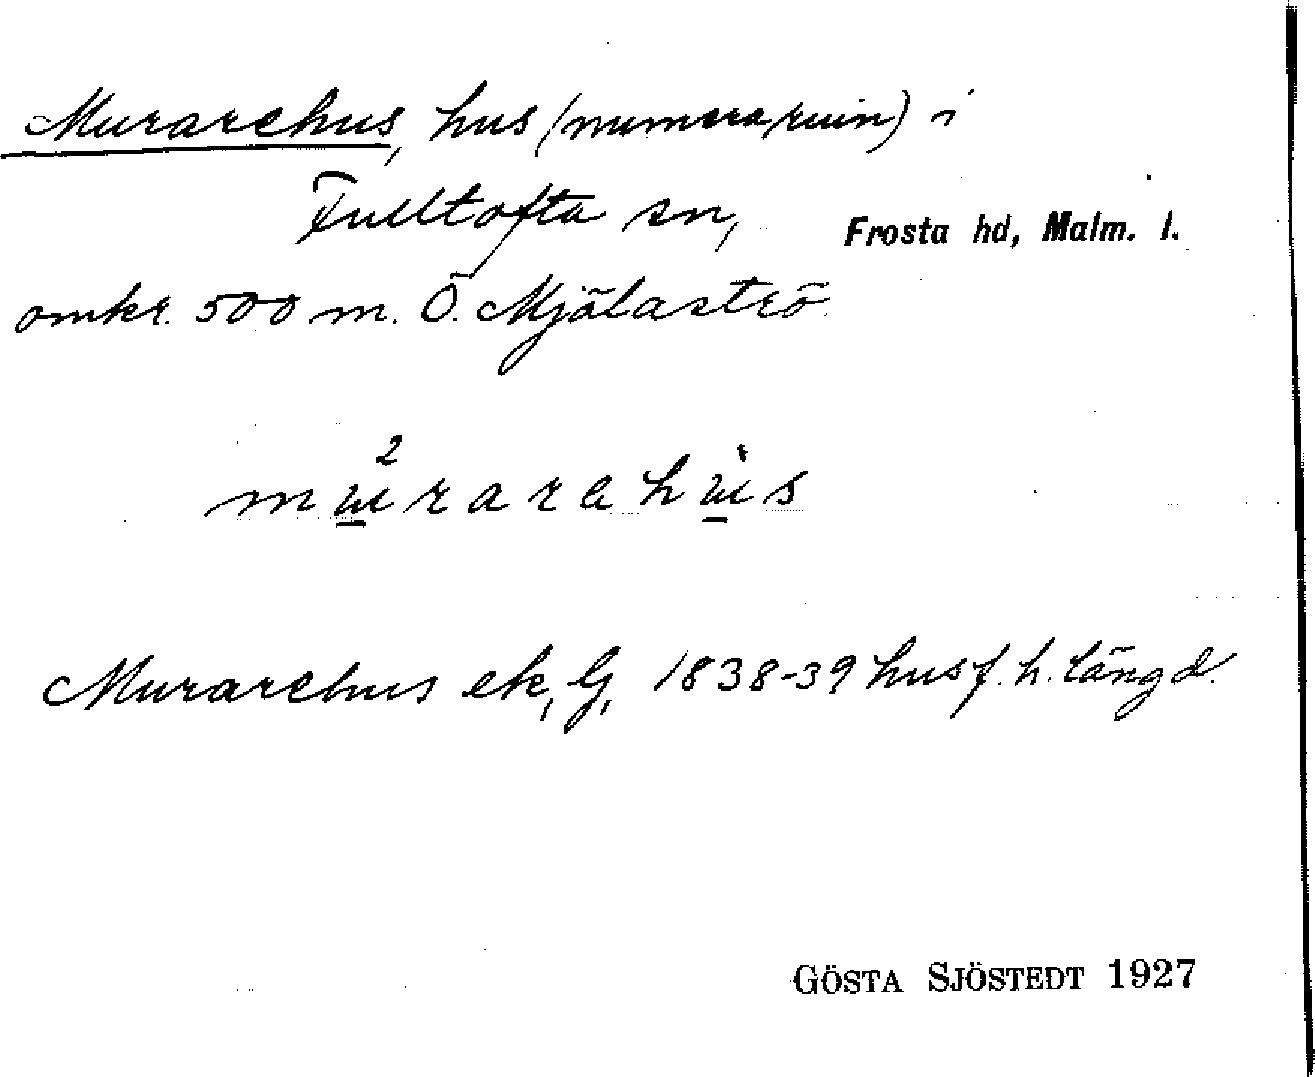 Murarehus, hus (numera ruin) i
Fulltofta sn, Frosta hd, Malm. l.
omkr. 500 m. Ö. Mjölaströ
Murarehus ek, G, 1838-39 husf. h. längd.
GÖSTA SJÖSTEDT 1927